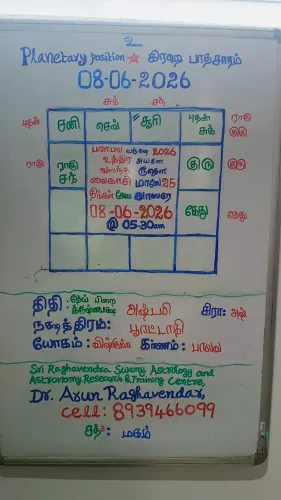 உ
Planetary position ★ கிரஹ பாதசாரம்
08-06-2026
சுக் சந்
புதன் சனி செவ் சூரி புதன் சுக் ராகு குரு
ராகு ராகு சந் குரு குரு
பராபவ வருடம் 2026
உத்திர அயன
வஸந்த ருதௌ
வைகாசி மாஸம் 25
திங்கள் சோம வாஸர
08-06-2026
@ 05-30am
கேது கேது
திதி: தேய் பிறை கிருஷ்ணபக்ஷ அஷ்டமி
நக்ஷத்திரம்: பூரட்டாதி
யோகம்: விஷ்கம்ப கரணம்: பாலவ
Sri Raghavendra Swamy Astrology and
Astronomy Research & Training Centre,
Dr. Arun Raghavendar,
cell: 8939466099
சந்: மகம்